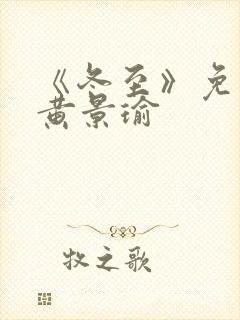 《冬至》免
黄景瑜
牧之歌